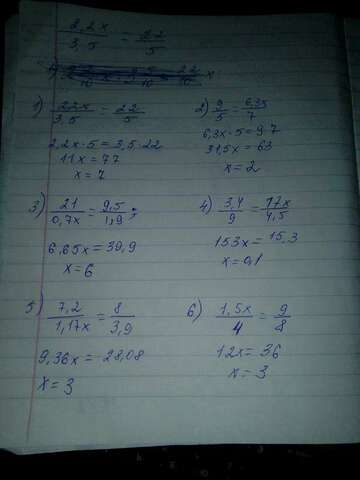 2,2x/3,5 = 22/5
1) 2,2x/3,5 = 22/5
2,2x·5 = 3,5·22
11x = 77
x = 7
2) 9/5 = 6,3x/7
6,3x·5 = 9·7
31,5x = 63
x = 2
3) 21/0,7x = 9,5/1,9;
6,65x = 39,9
x = 6
4) 3,4/9 = 17x/4,5
153x = 15,3
x = 0,1
5) 7,2/1,17x = 8/3,9
9,36x = 28,08
x = 3
6) 1,5x/4 = 9/8
12x = 36
x = 3